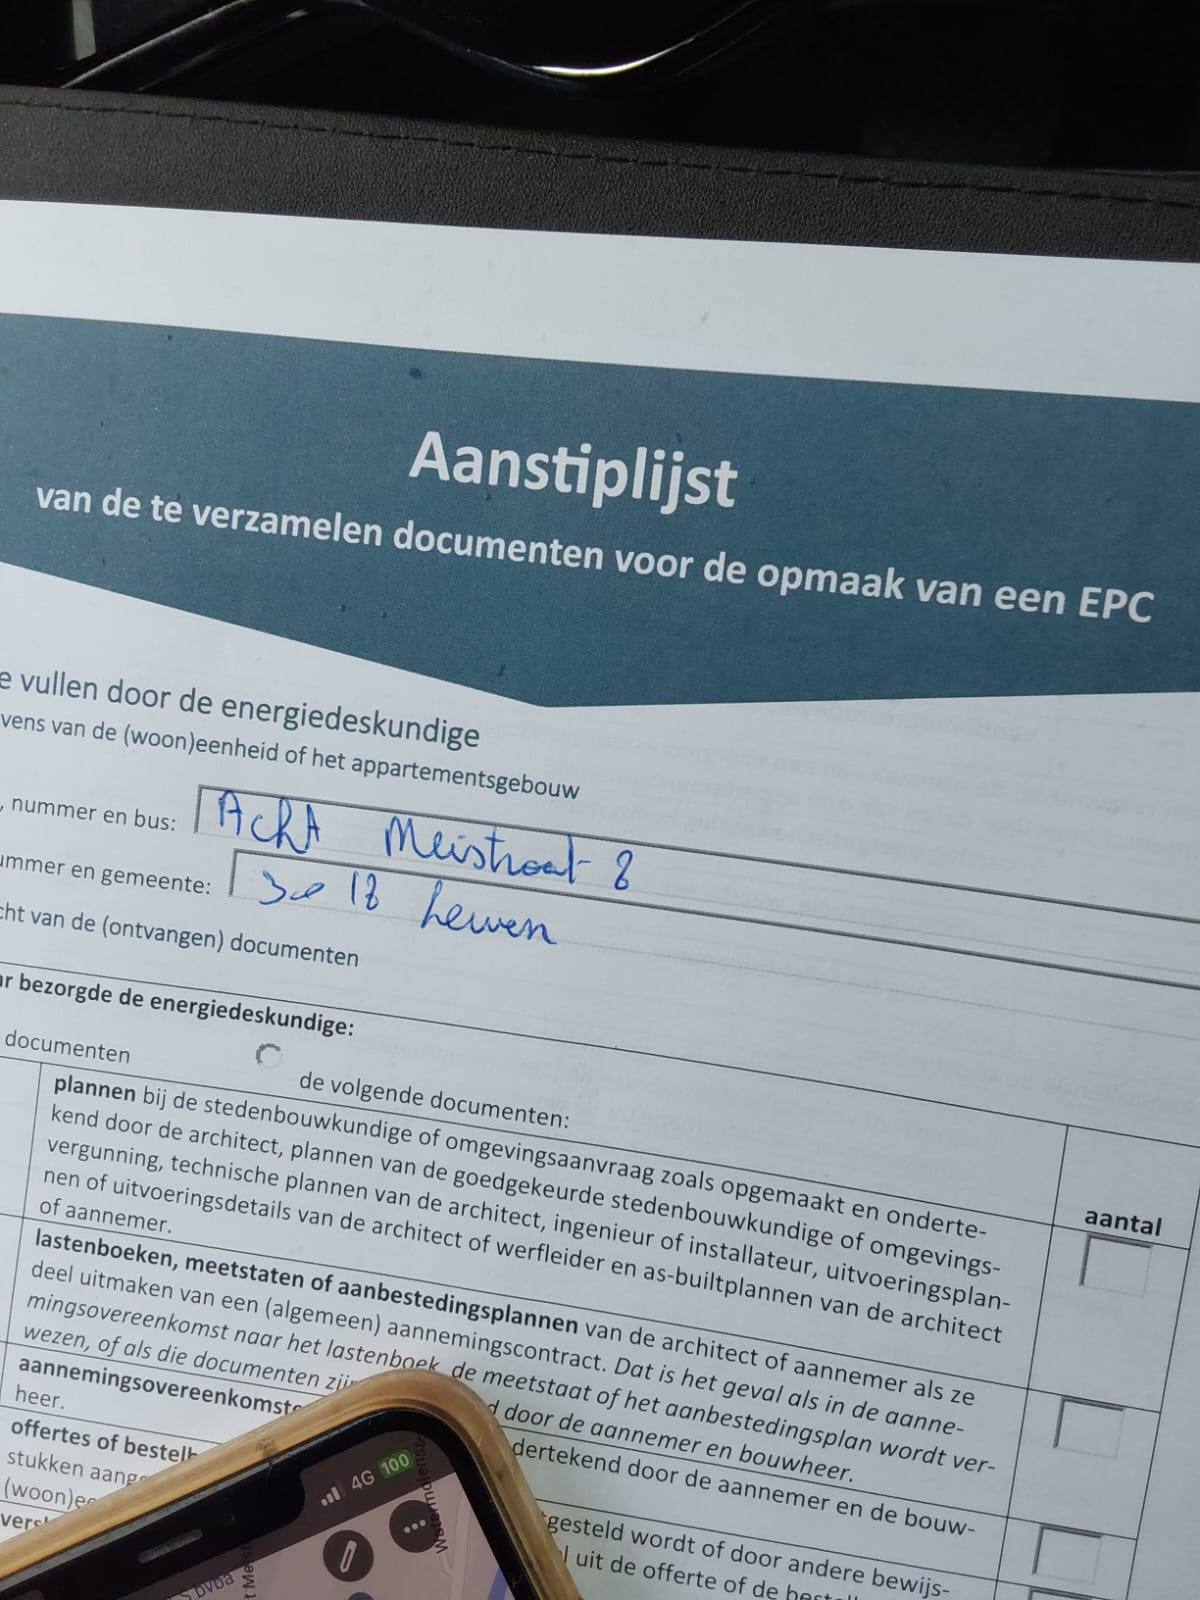 Aanstiplijst
van de te verzamelen documenten voor de opmaak van een EPC
e vullen door de energiedeskundige
vens van de (woon)eenheid of het appartementsgebouw
, nummer en bus: Acht Meistraat 8
ummer en gemeente: 3018 Leuven
cht van de (ontvangen) documenten
ar bezorgde de energiedeskundige:
documenten
de volgende documenten:
aantal
plannen bij de stedenbouwkundige of omgevingsaanvraag zoals opgemaakt en onderte-
kend door de architect, plannen van de goedgekeurde stedenbouwkundige of omgevings-
vergunning, technische plannen van de architect, ingenieur of installateur, uitvoeringsplan-
nen of uitvoeringsdetails van de architect of werfleider en as-builtplannen van de architect
of aannemer.
lastenboeken, meetstaten of aanbestedingsplannen van de architect of aannemer als ze
deel uitmaken van een (algemeen) aannemingscontract. Dat is het geval als in de aanne-
mingsovereenkomst naar het lastenboek, de meetstaat of het aanbestedingsplan wordt ver-
wezen, of als die documenten zij d door de aannemer en bouwheer.
aannemingsovereenkomst dertekend door de aannemer en de bouw-
heer.
offertes of bestelb gesteld wordt of door andere bewijs-
stukken aang l uit de offerte of de
(woon)ee
vers
4G 100
Watermolenst
bvba
t Meist